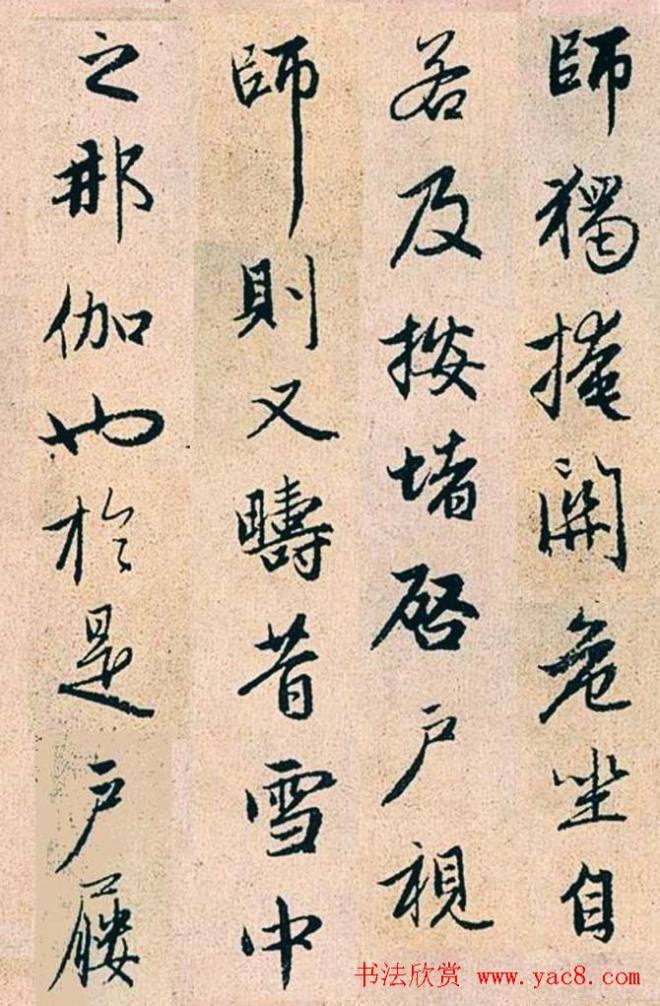 師獨掩關危坐自
若及按堵啓户視
師則又疇昔雪中
之那伽也於是户屨
书法欣赏 www.yac8.com